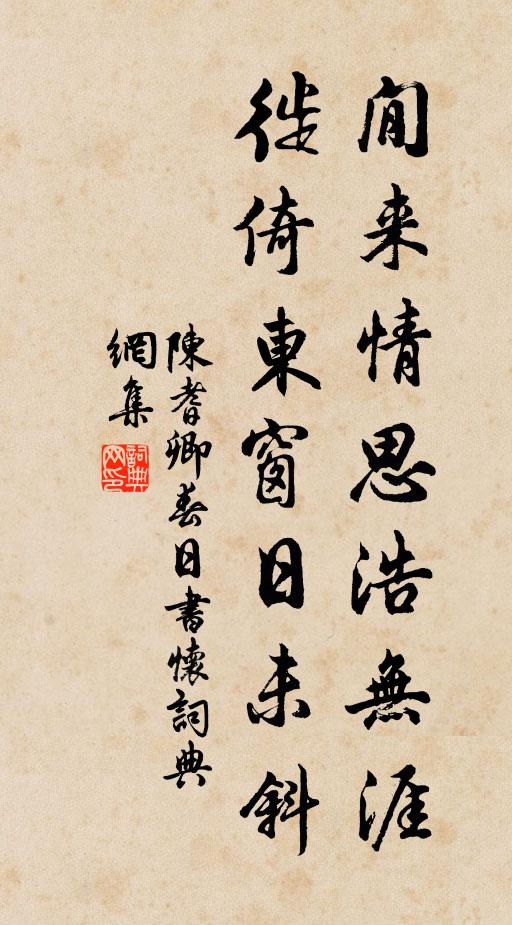 閒来情思浩無涯
徙倚東窗日未斜
陳耆卿春日書懷詞典
網集
詞典
网印